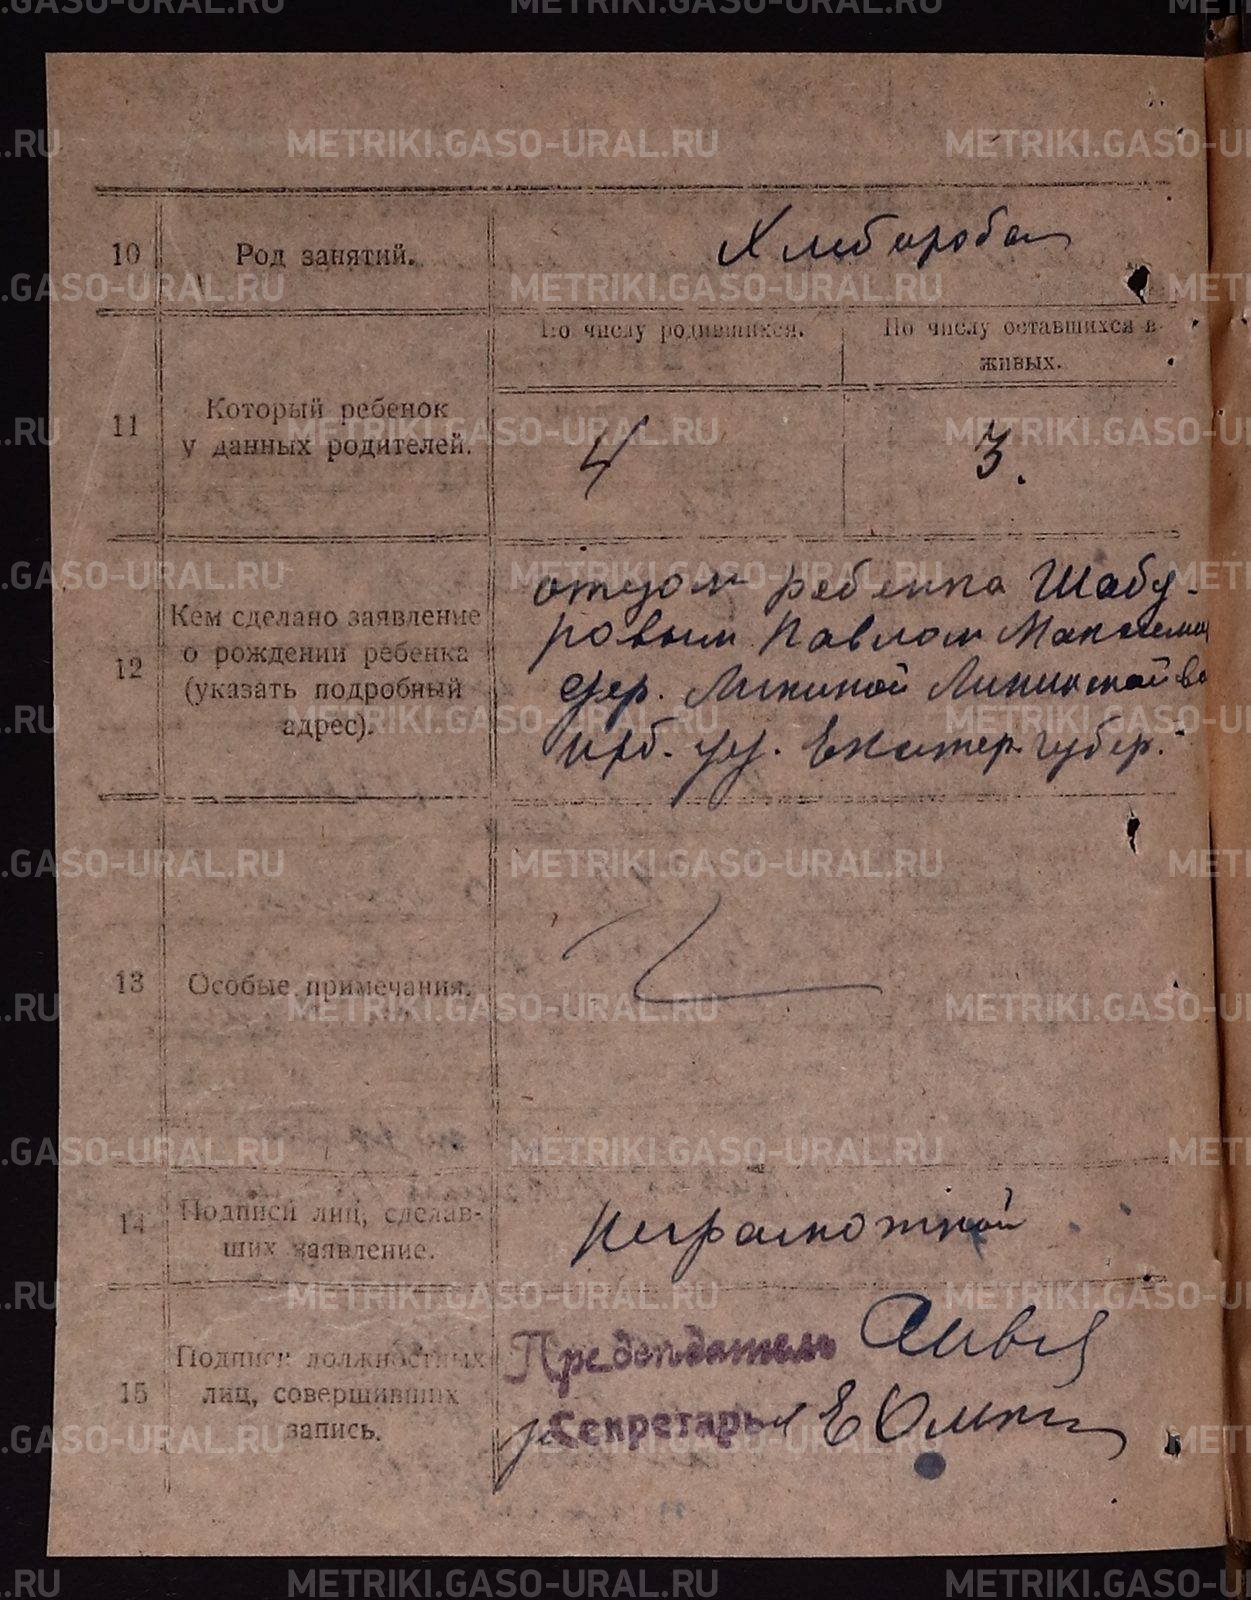 10
Род занятий.
Хлебароба
11
Который ребенок
у данных родителей.
По числу родившихся.
По числу оставшихся в
живых.
4
3.
12
Кем сделано заявление
о рождении ребенка
(указать подробный
адрес).
отцом ребенка Шабу-
ровым Павлом
дер. Ликиной Ликинской во
Ирб. уу. Екатер. губер.
13
Особые примечания.
14
Подписи лиц, сделав-
ших заявление.
Неграмотной
15
Подписи должностных
лиц, совершивших
запись.
Председатель
Секретарь
METRIKI.GASO-URAL.RU